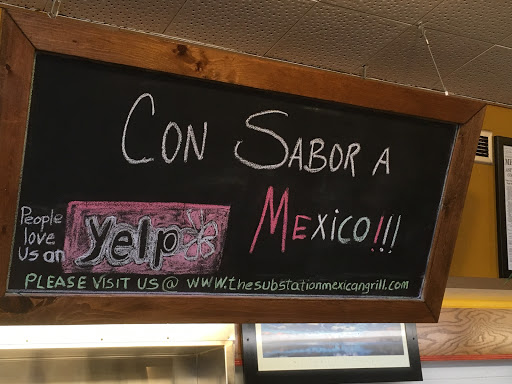 CON SABOR A
MEXICO!!!
People
love
Us on
yelp
PLEASE VISIT US @ WWW.thesubstationmexicangrill.com